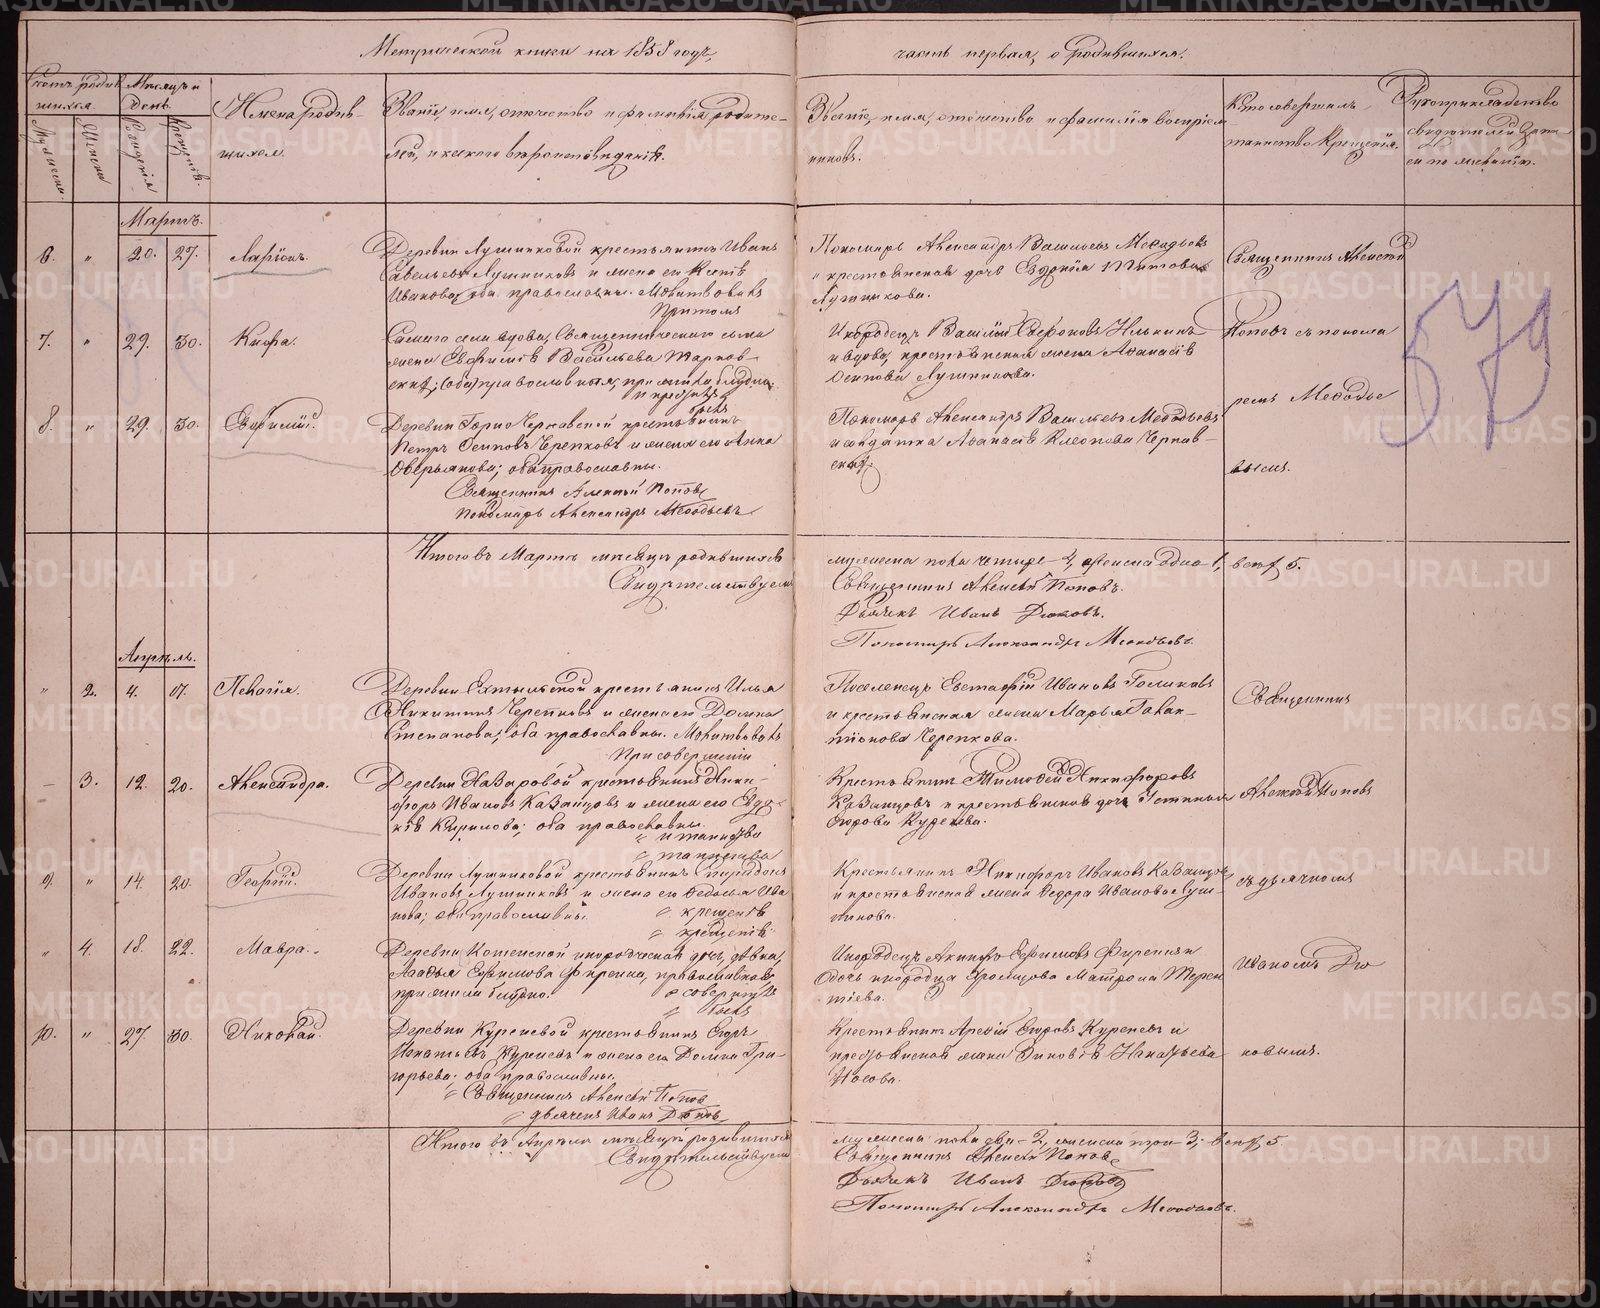 Метрической книги на 1858 годъ,
часть первая, о родившихся.
Счетъ родив-
шихся.
Мужеска.
Женска
Мѣсяцъ и
день.
Рожденія
Крещенія.
Имена родив-
шихся.
Званіе, имя, отчество и фамилія родите-
лей, и какого вѣроисповѣданія.
Званіе, имя, отечество и фамилія воспріем-
никовъ.
Кто совершалъ
таинство Крещенія.
Рукоприкладство
свидѣтелей запи-
си по желанію.
Мартъ.
6. " 20. 27. Ларіонъ.
Деревни Лушниковой крестьянинъ Иванъ
Савельевъ Лушниковъ и жена его
Иванова, оба православные. Молитвовалъ
Пономарь Александръ Васильевъ Меѳодьевъ
и крестьянская дочь Евдокія Титова
Лушникова.
Священникъ Алексѣй
7. " 29. 30. Кифа.
Сего села вдова, Священническаго сына
жена Евфимія Васильева
православная, прижила блудно
Инородецъ Василій
и вдова, крестьянская жена Афанасія
Осипова Лушникова.
Поповъ съ понома
8. " 29. 30. Евфимій.
Деревни крестьянинъ
Петръ Осиповъ Черепковъ и жена его Анна
Аверьянова; оба православны.
Священникъ Алексѣй Поповъ
Пономарь Александръ Меѳодьевъ
Пономарь Александръ Васильевъ Меѳодьевъ
и солдатка Афанасія Клеопова Чернав-
ская.
ремъ Меѳодье
вымъ.
579
Итого въ Мартѣ мѣсяцѣ родившихся
Свидѣтельствуемъ
мужеска пола четыре 4, женска одна 1, всего 5.
Священникъ Алексѣй Поповъ.
Дьячекъ Иванъ Дюковъ.
Пономарь Александръ Меѳодьевъ.
Апрѣль.
" 2. 4. 17. Пелагія.
Деревни крестьянинъ Илья
Никитинъ Черепковъ и жена его Домна
Степанова; оба православны. Молитвовалъ
При совершеніи
Поселенецъ Евстафій Ивановъ Голиковъ
и крестьянская жена Марья Галак-
тіонова Черепкова.
Священникъ
— 3. 12. 20. Александра.
Деревни Назаровой крестьянинъ Ники-
форъ Ивановъ Казанцовъ и жена его Евдо-
кія Кирилова; оба православны.
и таинства
таинства
Крестьянинъ Тимоѳей Никифоровъ
Казанцовъ и крестьянская дочь Устинья
Егорова Куренева.
Алексѣй Поповъ
9. " 14. 20. Георгій.
Деревни Лушниковой крестьянинъ Спиридонъ
Ивановъ Лушниковъ и жена его Ѳедосья Ива
нова; оба православны.
крещенія
крещенія
Крестьянинъ Никифоръ Ивановъ Казанцовъ
и крестьянская жена Ѳедора Иванова Луш-
никова.
съ дьячкомъ
" 4. 18. 22. Мавра.
Деревни инородческая дочь, дѣвка,
Авдья Ефимова Фирсина, православная,
прижила блудно.
совершалъ
былъ
Инородецъ Акинфъ Ефимовъ Фирсинъ и
дочь инородца Матрона Терен
тіева.
Иваномъ Дю
10. " 27. 30. Николай.
Деревни Куреневой крестьянинъ Егоръ
Игнатьевъ Куреневъ и жена его Домна Гри-
горьева; оба православны.
Священникъ Алексѣй Поповъ
дьячекъ Иванъ Дюковъ
Крестьянинъ Арсеній Егоровъ Куреневъ и
крестьянская жена Зиновія Игнатьева
Носова.
ковымъ.
Итого въ Апрѣлѣ мѣсяцѣ родившихся
Свидѣтельствуемъ
мужеска пола два - 2, женска три 3; всего 5
Священникъ Алексѣй Поповъ
Дьячекъ Иванъ Дюковъ
Пономарь Александръ Меѳодьевъ.
METRIKI.GASO-URAL.RU